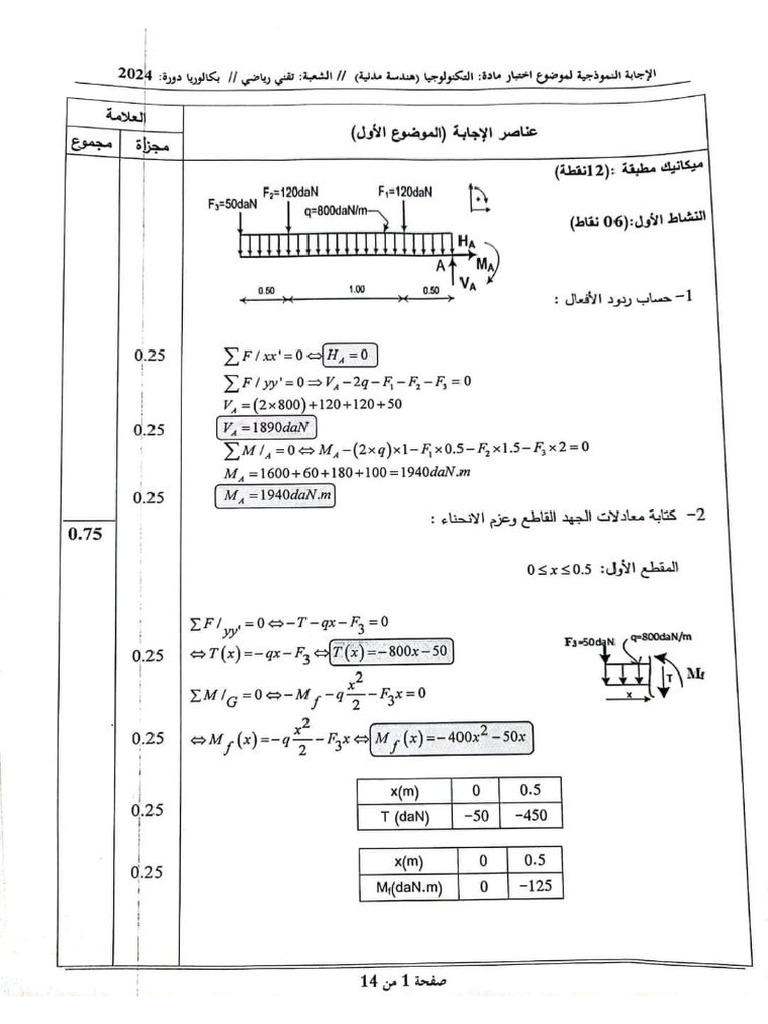 الإجابة النموذجية لموضوع اختبار مادة: التكنولوجيا (هندسة مدنية) // الشعبة: تقني رياضي // بكالوريا دورة: 2024
العلامة
عناصر الإجابة (الموضوع الأول)
مجزأة
مجموع
ميكانيك مطبقة :(12نقطة)
النشاط الأول:(06 نقاط)
F₃=50daN
F₂=120daN
F₁=120daN
q=800daN/m
H_A
A
M_A
V_A
0.50
1.00
0.50
1- حساب ردود الأفعال :
0.25
∑F/xx'=0⇔H_A=0
∑F/yy'=0⇒V_A−2q−F₁−F₂−F₃=0
V_A=(2×800)+120+120+50
0.25
V_A=1890daN
∑M/_A=0⇔M_A−(2×q)×1−F₁×0.5−F₂×1.5−F₃×2=0
M_A=1600+60+180+100=1940daN.m
0.25
M_A=1940daN.m
0.75
2- كتابة معادلات الجهد القاطع وعزم الانحناء :
المقطع الأول: 0≤x≤0.5
ΣF/yy'=0⇔−T−qx−F₃=0
0.25
⇔T(x)=−qx−F₃⇔T(x)=−800x−50
ΣM/_G=0⇔−M_f−q x²/2−F₃x=0
0.25
⇔M_f(x)=−q x²/2−F₃x⇔M_f(x)=−400x²−50x
F₃=50daN
q=800daN/m
T
Mf
x
0.25
x(m) 0 0.5
T (daN) −50 −450
0.25
x(m) 0 0.5
Mf(daN.m) 0 −125
صفحة 1 من 14